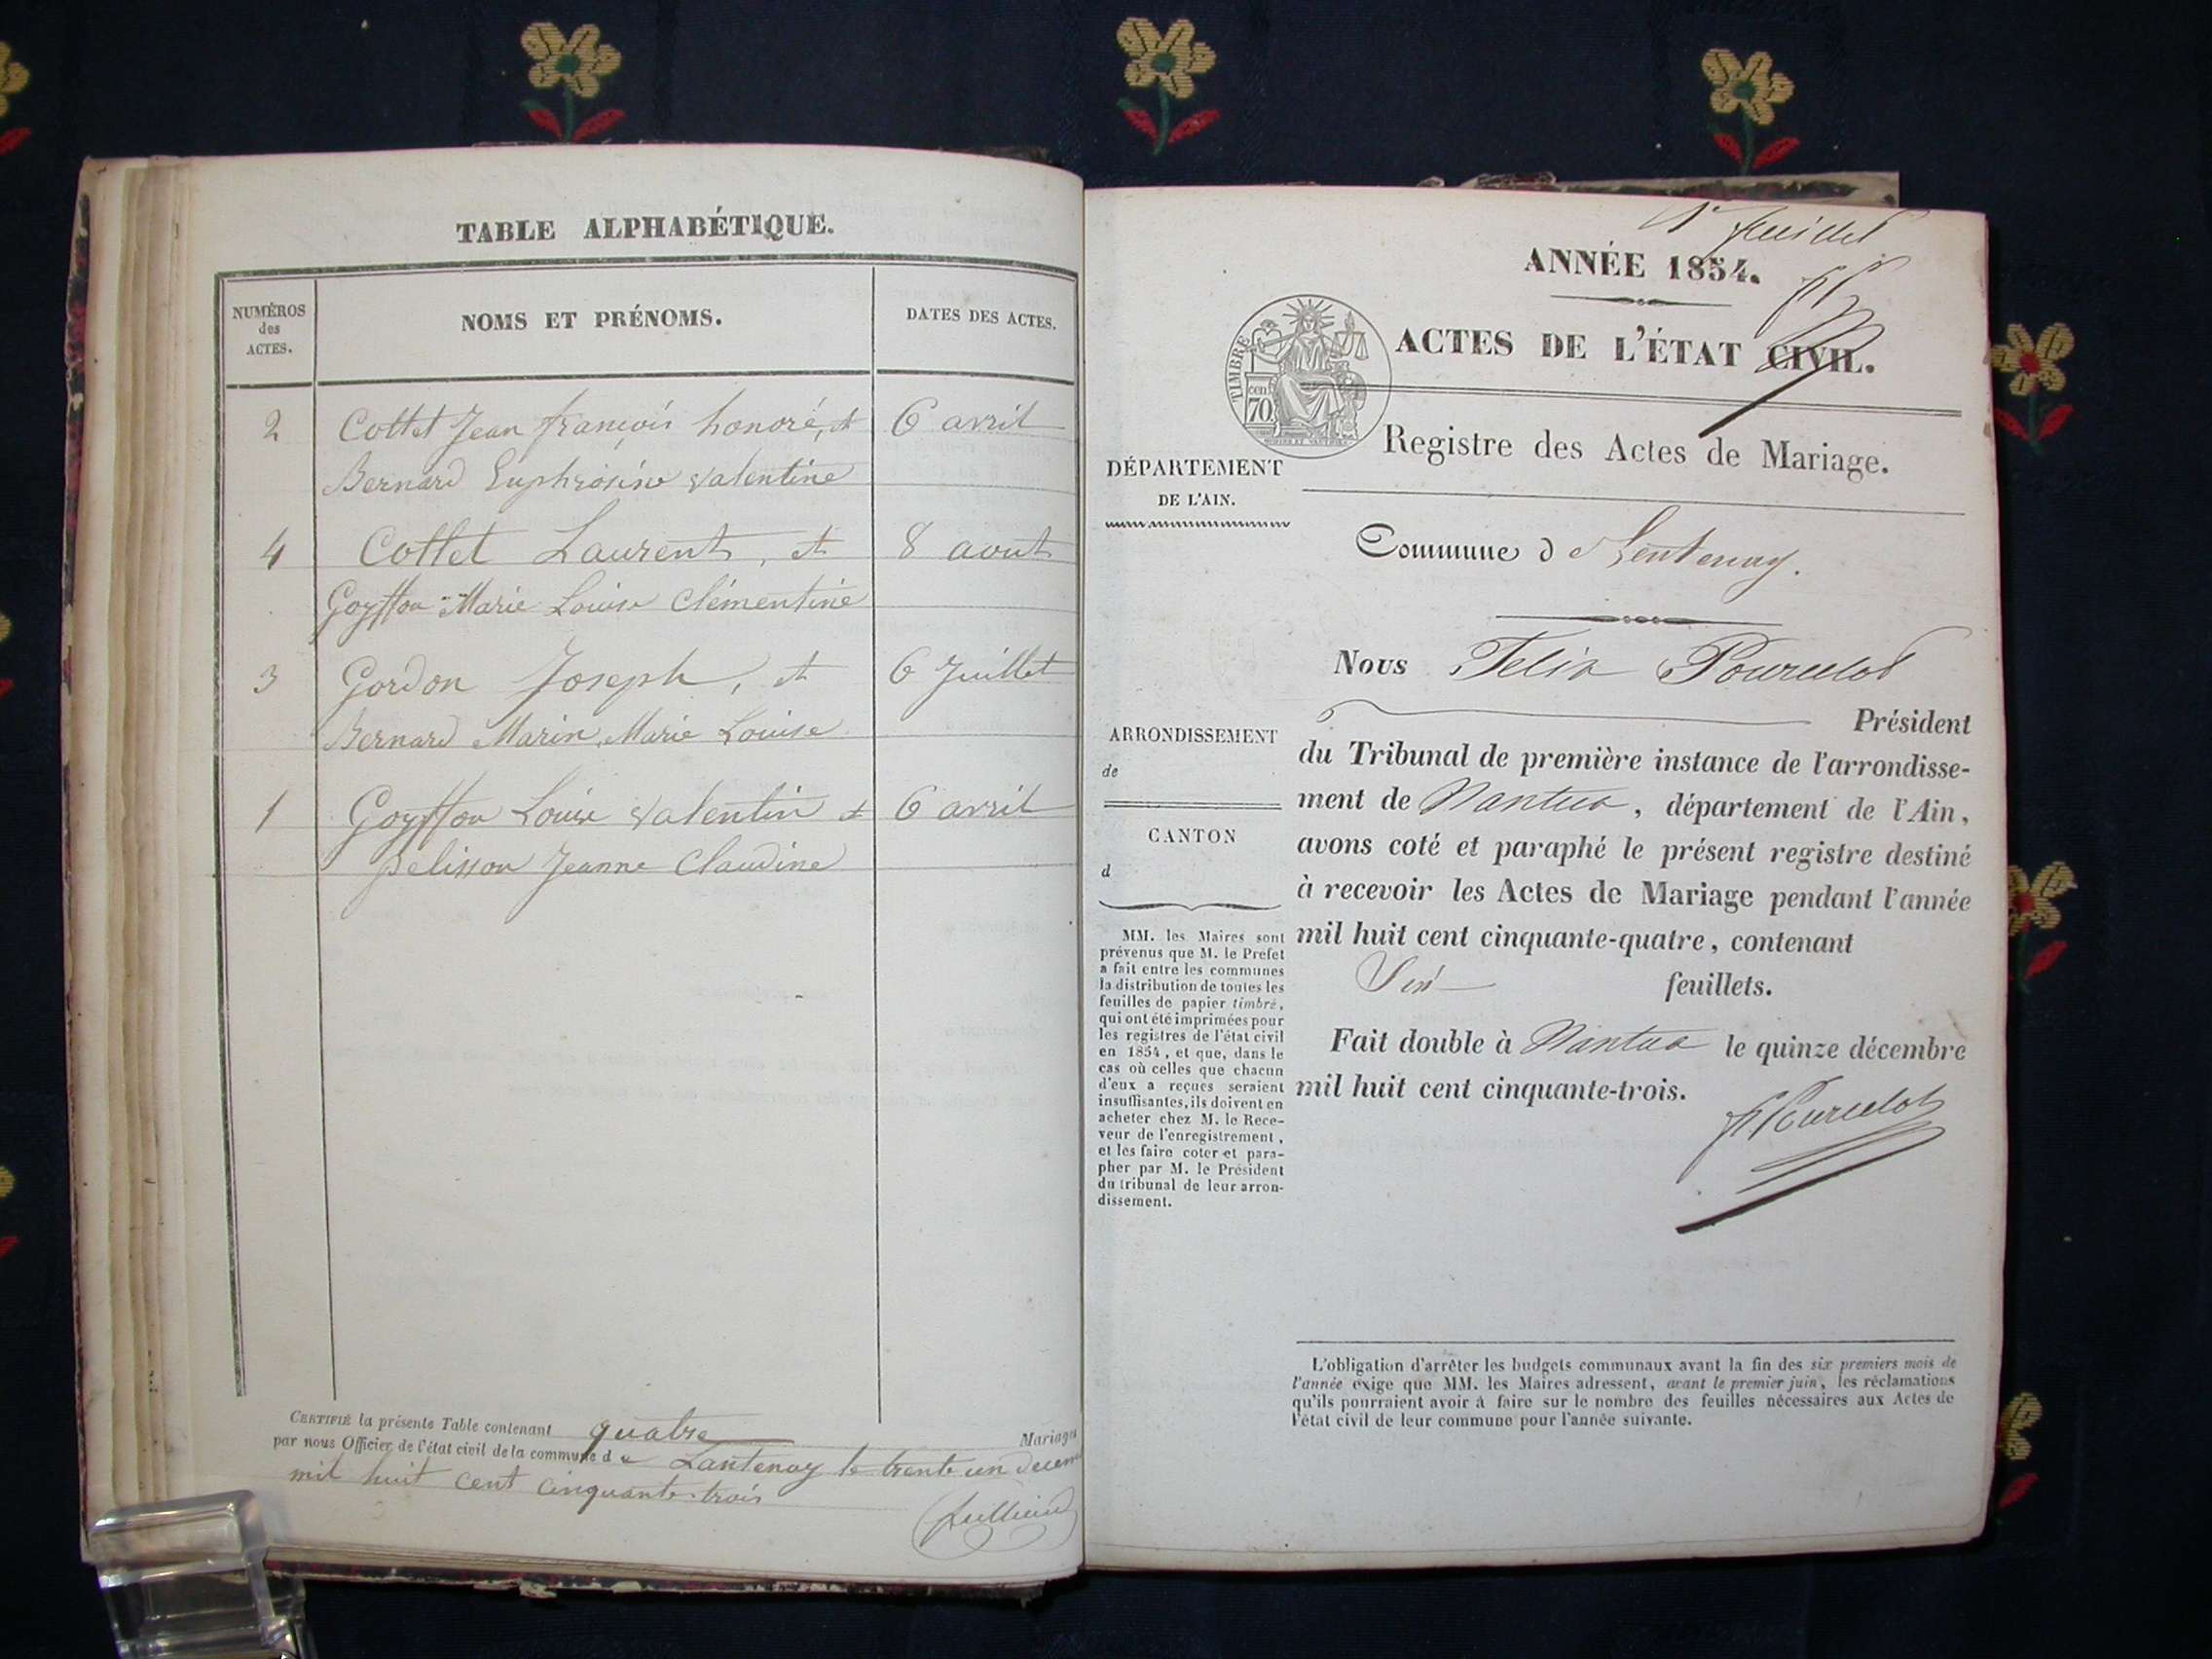 TABLE ALPHABÉTIQUE.
NUMÉROS
des
ACTES.
NOMS ET PRÉNOMS.
DATES DES ACTES.
2 Cottet Jean françois honoré, et 6 avril
Bernard Euphrosine Valentine
4 Cottet Laurent, et 8 aout
Goyffon Marie Louise Clémentine
3 Gordon Joseph, et 6 Juillet
Bernard Marin, Marie Louise
1 Goyffon Louis Valentin et 6 avril
pelisson Jeanne Claudine
CERTIFIÉ la présente Table contenant quatre Mariages
par nous Officier de l'état civil de la commune de Lantenay le trente un décem
mil huit cent cinquante-trois
1er feuillet
ANNÉE 1854.
TIMBRE
cent
70
ACTES DE L'ÉTAT CIVIL.
Registre des Actes de Mariage.
DÉPARTEMENT
DE L'AIN.
Commune de Lentenay.
Nous Felix Pourcelot
Président
du Tribunal de première instance de l'arrondisse-
ment de Nantua, département de l'Ain,
avons coté et paraphé le présent registre destiné
à recevoir les Actes de Mariage pendant l'année
mil huit cent cinquante-quatre, contenant
Six feuillets.
Fait double à Nantua le quinze décembre
mil huit cent cinquante-trois.
Pourcelot
ARRONDISSEMENT
de
CANTON
d
MM. les Maires sont
prévenus que M. le Préfet
a fait entre les communes
la distribution de toutes les
feuilles de papier timbré,
qui ont été imprimées pour
les registres de l'état civil
en 1854, et que, dans le
cas où celles que chacun
d'eux a reçues seraient
insuffisantes, ils doivent en
acheter chez M. le Rece-
veur de l'enregistrement,
et les faire coter et para-
pher par M. le Président
du tribunal de leur arron-
dissement.
L'obligation d'arrêter les budgets communaux avant la fin des six premiers mois de
l'année exige que MM. les Maires adressent, avant le premier juin, les réclamations
qu'ils pourraient avoir à faire sur le nombre des feuilles nécessaires aux Actes de
l'état civil de leur commune pour l'année suivante.